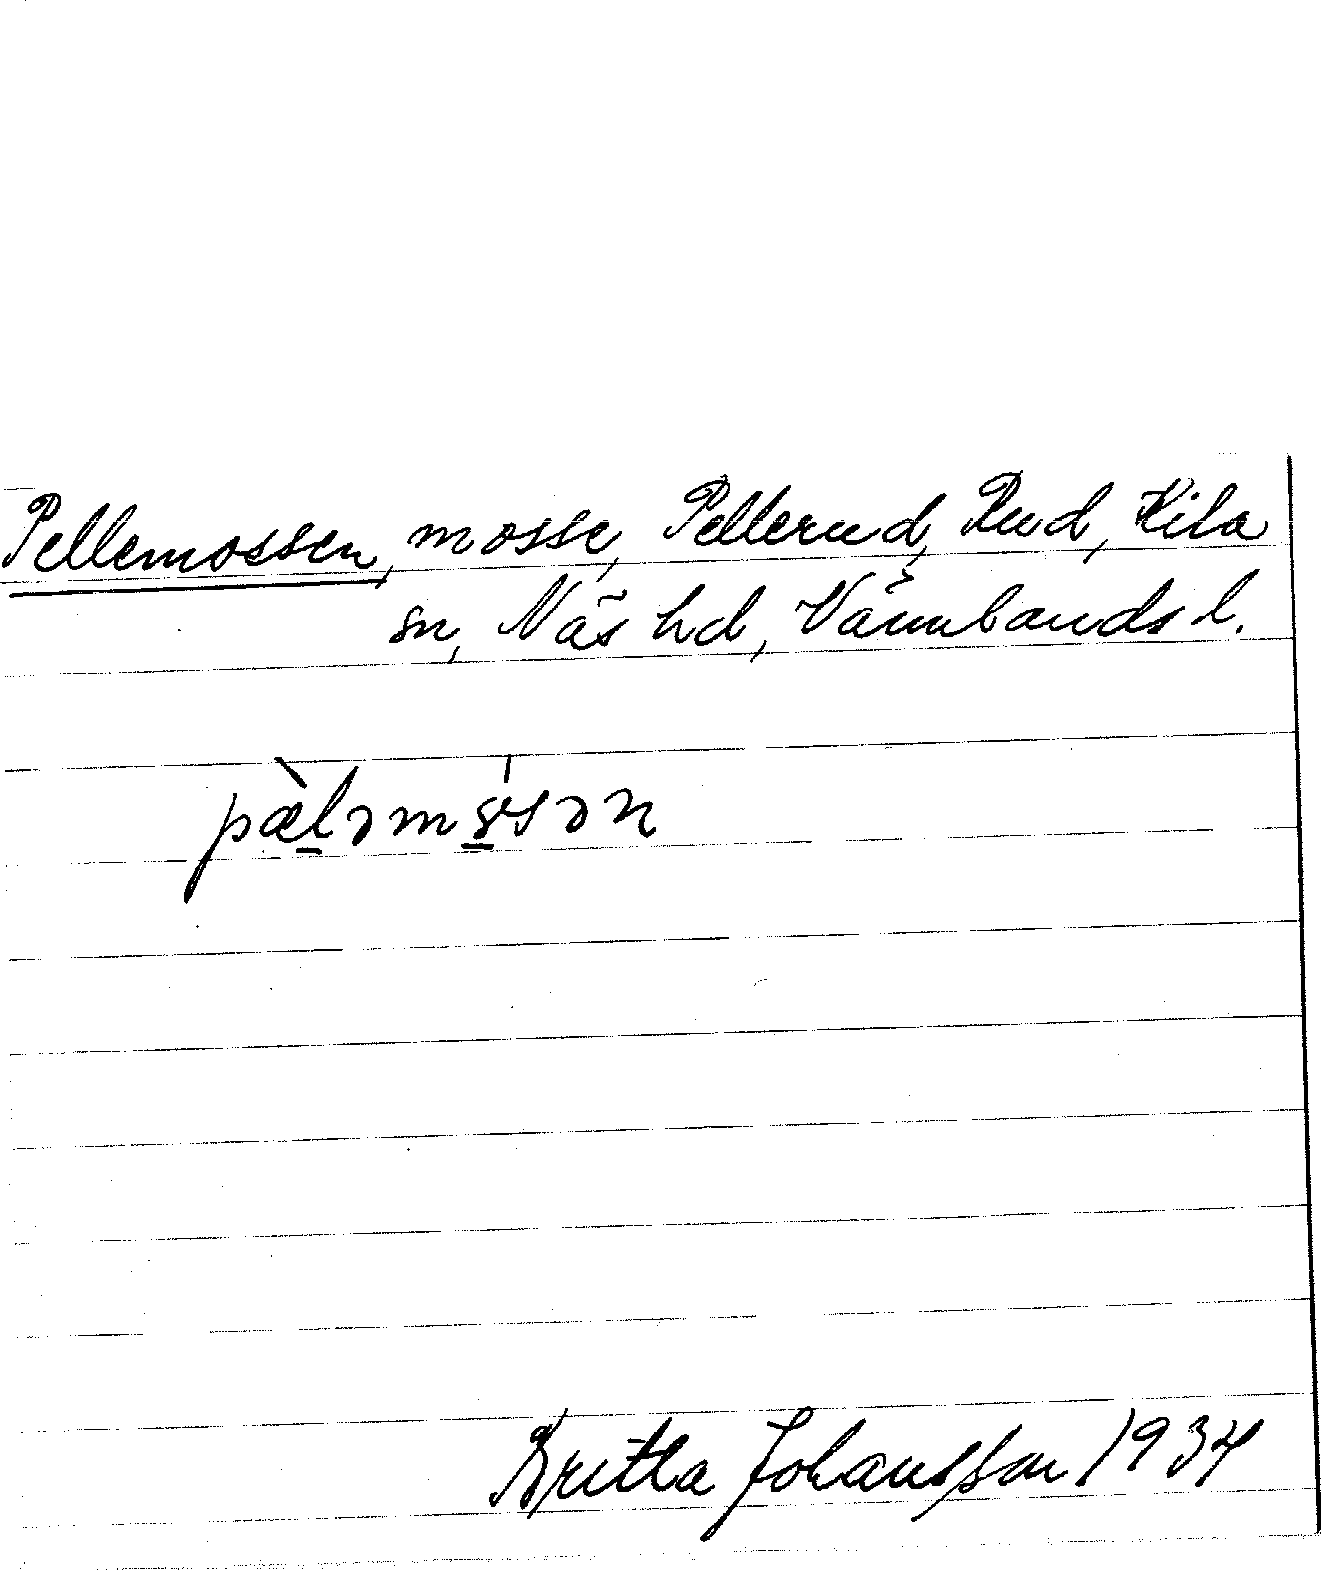 Pellemossen, mosse, Pellerud, Rud, Kila
sn, Näs hd, Värmlands l.
pæ̀ləmósən
Britta Johansson 1934